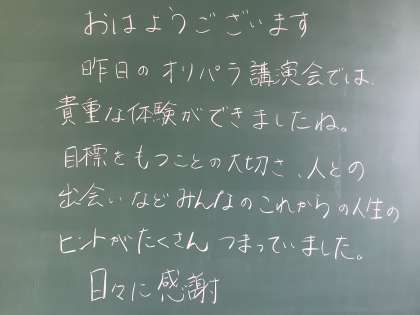 おはようございます
昨日のオリパラ講演会では、
貴重な体験ができましたね。
目標をもつことの大切さ、人との
出会いなどみんなのこれからの人生の
ヒントがたくさんつまっていました。
日々に感謝